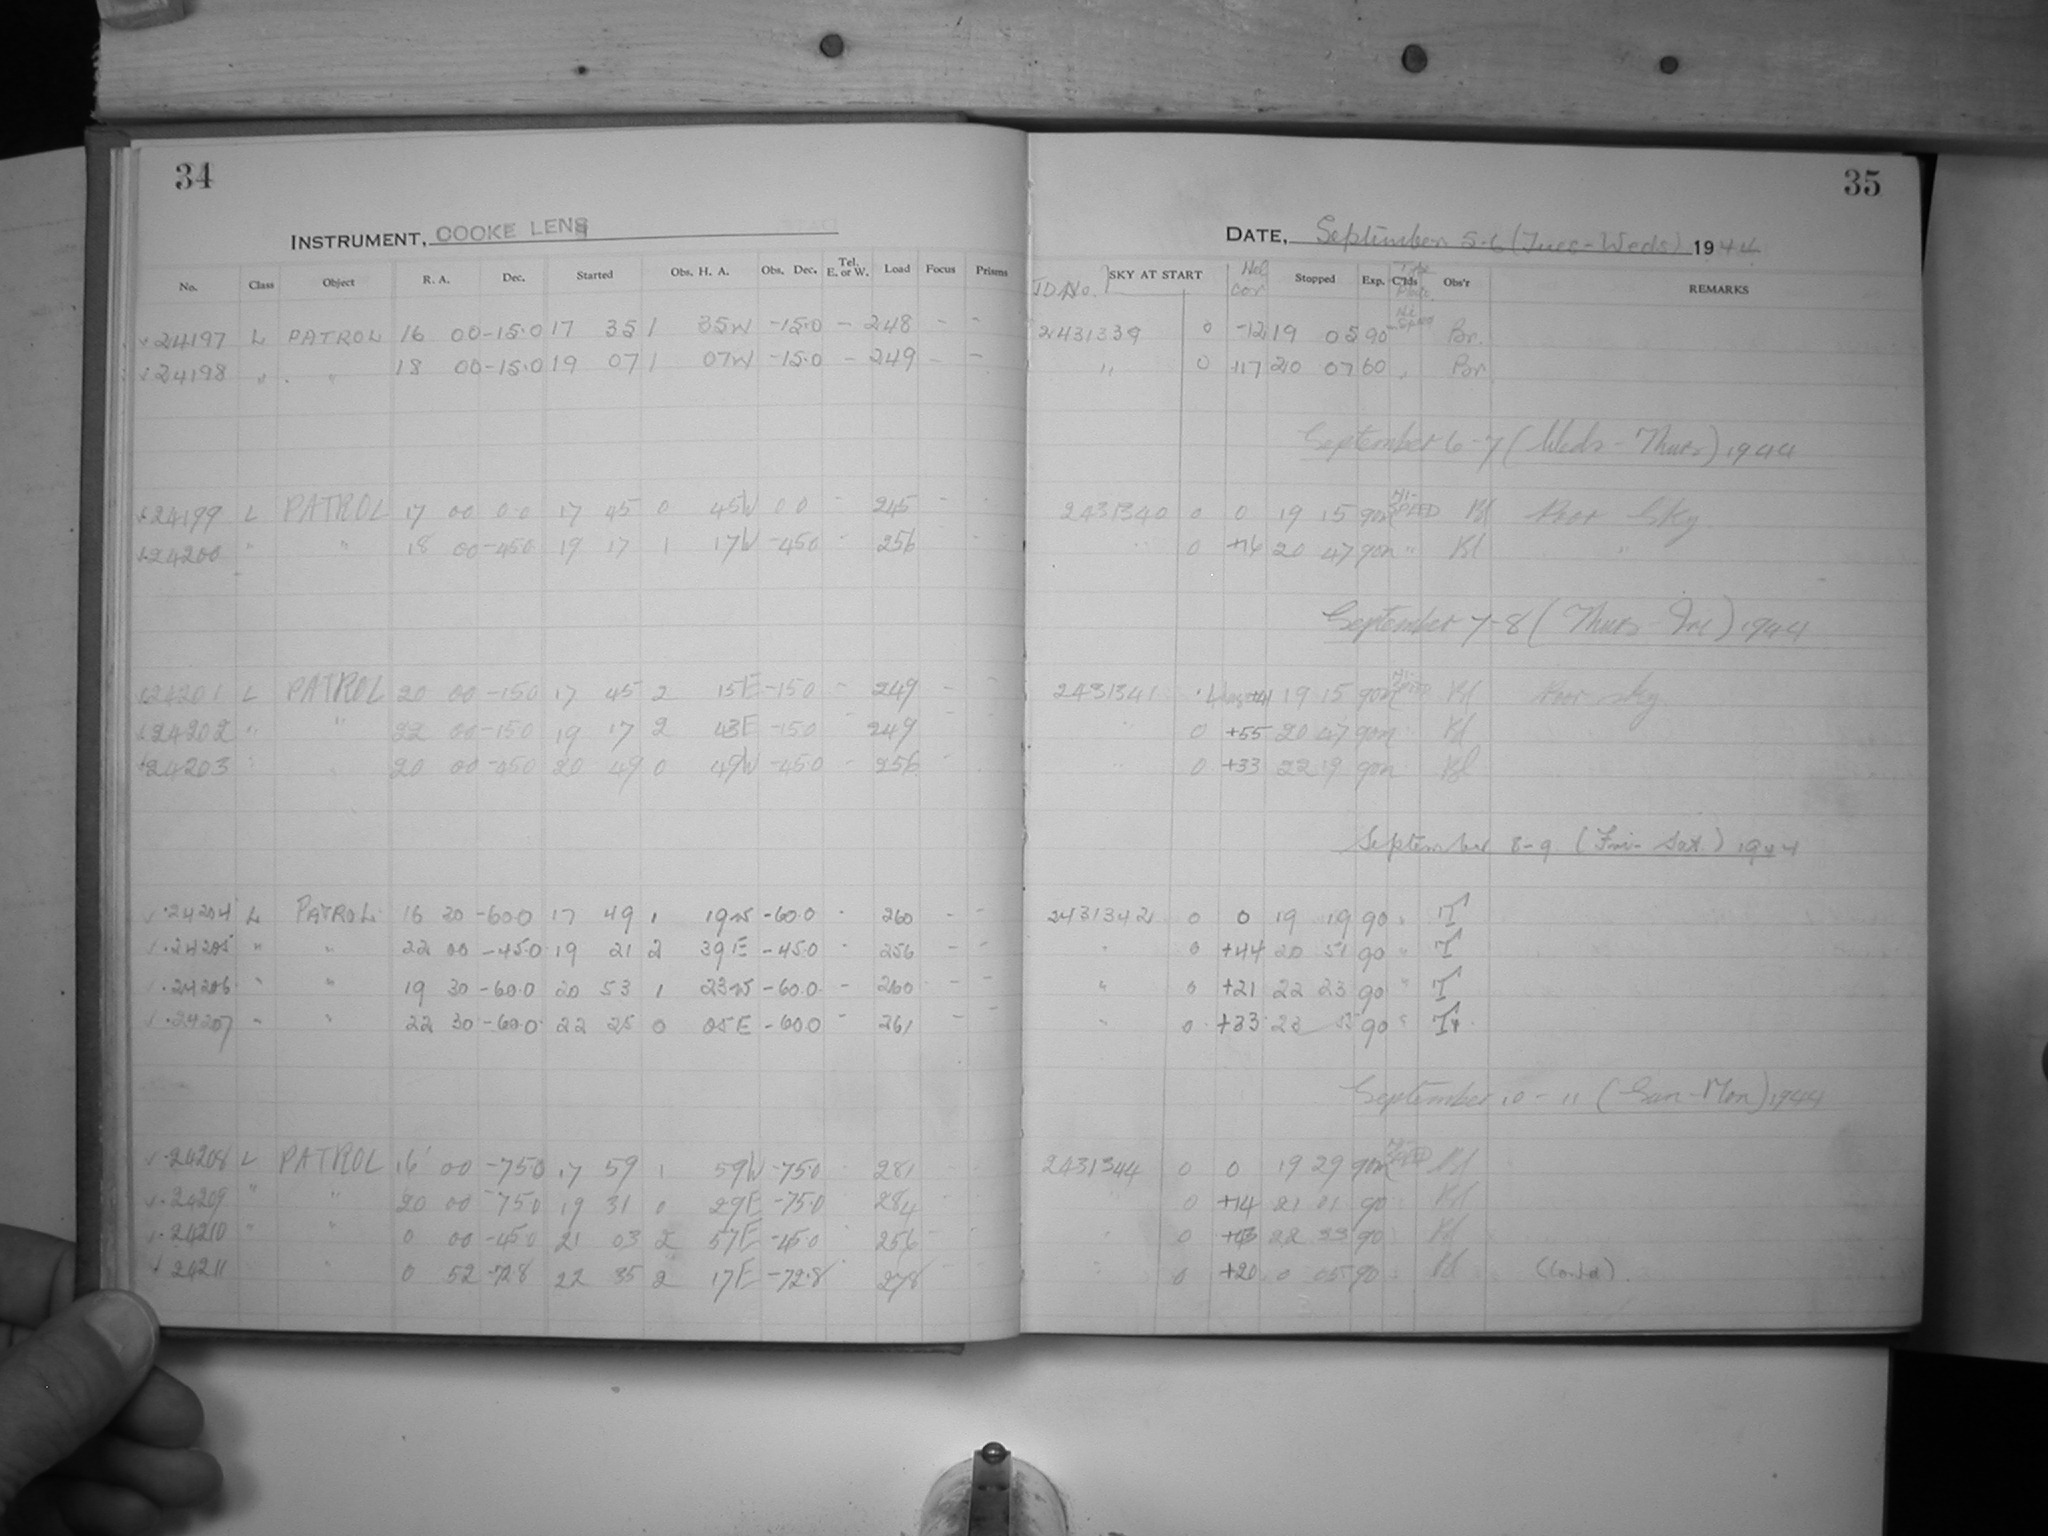 34
INSTRUMENT, COOKE LENS
No. Class Object R. A. Dec. Started Obs. H. A. Obs. Dec. Tel. E. or W. Load Focus Prisms
24197 L PATROL 16 00 -15.0 17 35 1 35W -15.0 - 248 - -
24198 " " 18 00 -15.0 19 07 1 07W -15.0 - 249 - -
24199 L PATROL 17 00 0.0 17 45 0 45W 0.0 - 245 - -
24200 " " 18 00 -45.0 19 17 1 17W -45.0 - 256 -
24201 L PATROL 20 00 -15.0 17 45 2 15E -15.0 - 249 - -
24202 " " 22 00 -15.0 19 17 2 43E -15.0 - 249 -
24203 " " 20 00 -45.0 20 49 0 49W -45.0 - 256 -
24204 L PATROL 16 30 -60.0 17 49 1 19W -60.0 - 260 - -
24205 " " 22 00 -45.0 19 21 2 39E -45.0 - 256 - -
24206 " " 19 30 -60.0 20 53 1 23W -60.0 - 260 - -
24207 " " 22 30 -60.0 22 25 0 05E -60.0 - 261 - -
24208 L PATROL 16 00 -75.0 17 59 1 59W -75.0 281
24209 " " 20 00 -75.0 19 31 0 29E -75.0 284
24210 " " 0 00 -45.0 21 03 2 57E -45.0 256
24211 " 0 52 -72.8 22 35 2 17E -72.8 278
35
DATE, September 5-6 (Tues-Weds) 1944
J.D. No. SKY AT START Hel cor Stopped Exp. C'lds Obs'r REMARKS
2431339 0 -12 19 05 90 Br.
" 0 +17 20 07 60 " Br
September 6-7 (Weds-Thurs) 1944
2431340 0 0 19 15 90m HI-SPEED Bl Poor Sky
" 0 +16 20 47 90m " Bl "
September 7-8 (Thurs-Fri) 1944
2431341 19 15 90m HI-SPEED Bl Poor Sky
" 0 +55 20 47 90m " Bl
" 0 +33 22 19 90m Bl
September 8-9 (Fri-Sat.) 1944
2431342 0 0 19 19 90 " T
" 0 +44 20 51 90 " T
" 0 +21 22 23 90 " T
" 0 +33 23 55 90 "
September 10-11 (Sun-Mon) 1944
2431344 0 0 19 29 90m Bl
0 +14 21 01 90 Bl
" 0 22 33 90 Bl
" 0 +20 0 05 90 Bl (Contd).